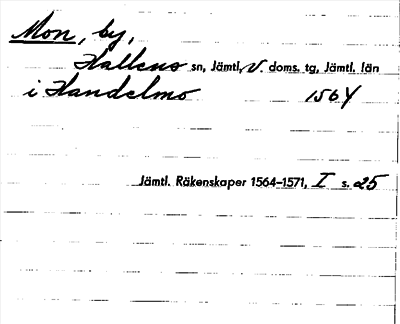 Mon, by,
Hallens sn, Jämtl. v. doms. tg, Jämtl. län
i Handelmo 1564
Jämtl. Räkenskaper 1564–1571, I s. 25